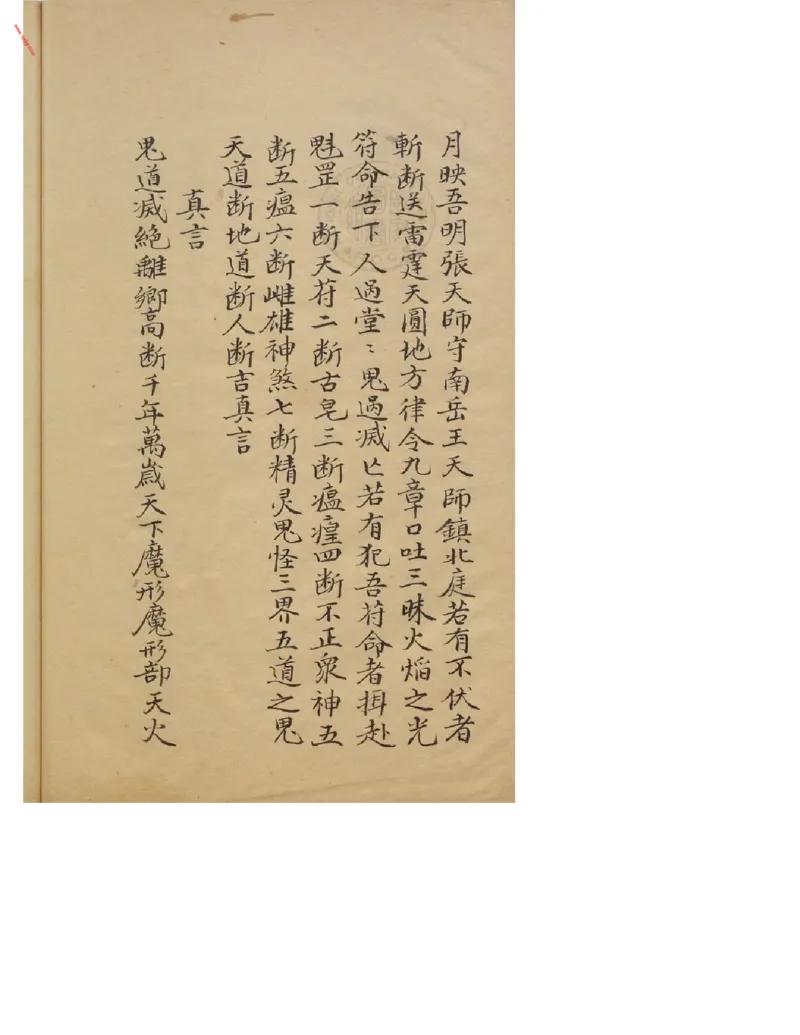 月映吾明張天師守南岳王天師鎮北庭若有不伏者
斬断送雷霆天圓地方律令九章口吐三昧火焰之光
符命告下人過堂〻鬼過滅亡若有犯吾苻命者揖赴
魁罡一断天苻二断古皂三断瘟㾮四断不正眾神五
断五瘟六断雌雄神煞七断精灵鬼怪三界五道之鬼
天道断地道断人断吉真言
真言
鬼道滅絶離鄉高断千年萬歲天下魔形魔形部天火